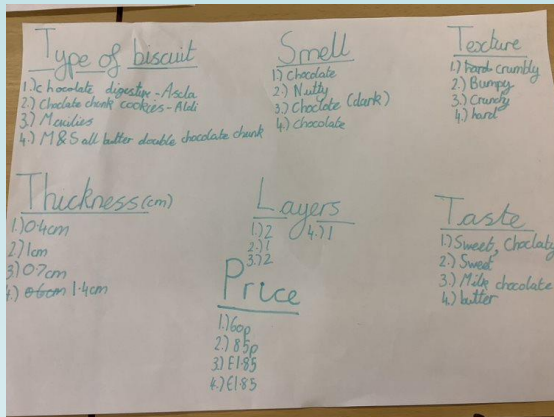 Type of biscuit
1.) chocolate digestive - Asda
2.) Choclate chonk cookies - Aldi
3.)
4.) M&S all butter double chocolate chunk
Smell
1.) Chocolate
2.) Nutty
3.) Choclate (dark)
4.) chocolate
Texture
1.) hard crumbly
2.) Bumpy
3.) Crunchy
4.) hard
Thickness (cm)
1.) 0.4cm
2.) 1cm
3.) 0.7cm
4.) 0.6cm 1.4cm
Layers
1.) 2 4.) 1
2.) 1
3.) 2
Taste
1.) Sweet, Choclaty
2.) Sweet
3.) Milk chocolate
4.) butter
Price
1.) 60p
2.) 85p
3.) £1.85
4.) £1.85